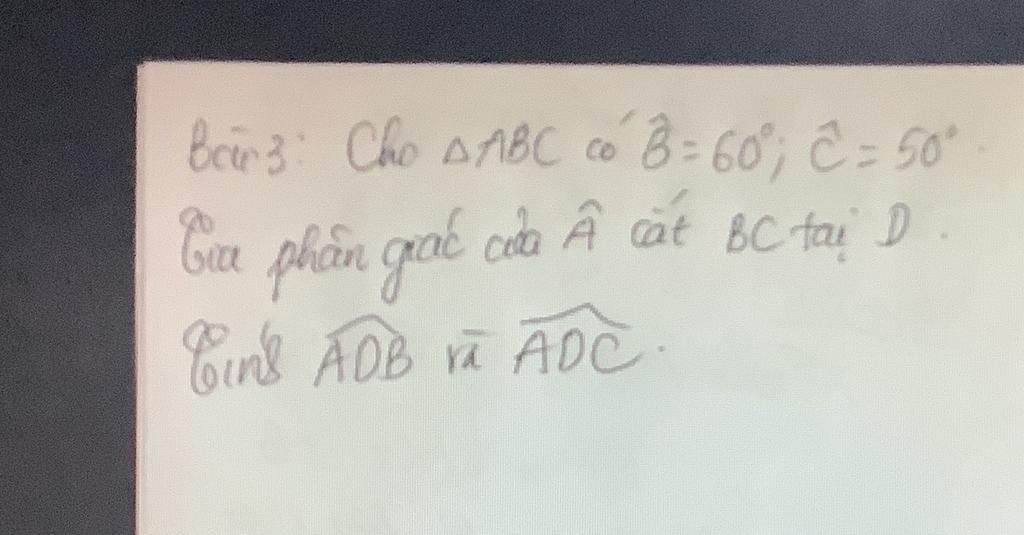 Bài 3: Cho △ABC có B̂ = 60°; Ĉ = 50°.
Tia phân giác của Â cắt BC tại D.
Tính ADB̂ và ADĈ.